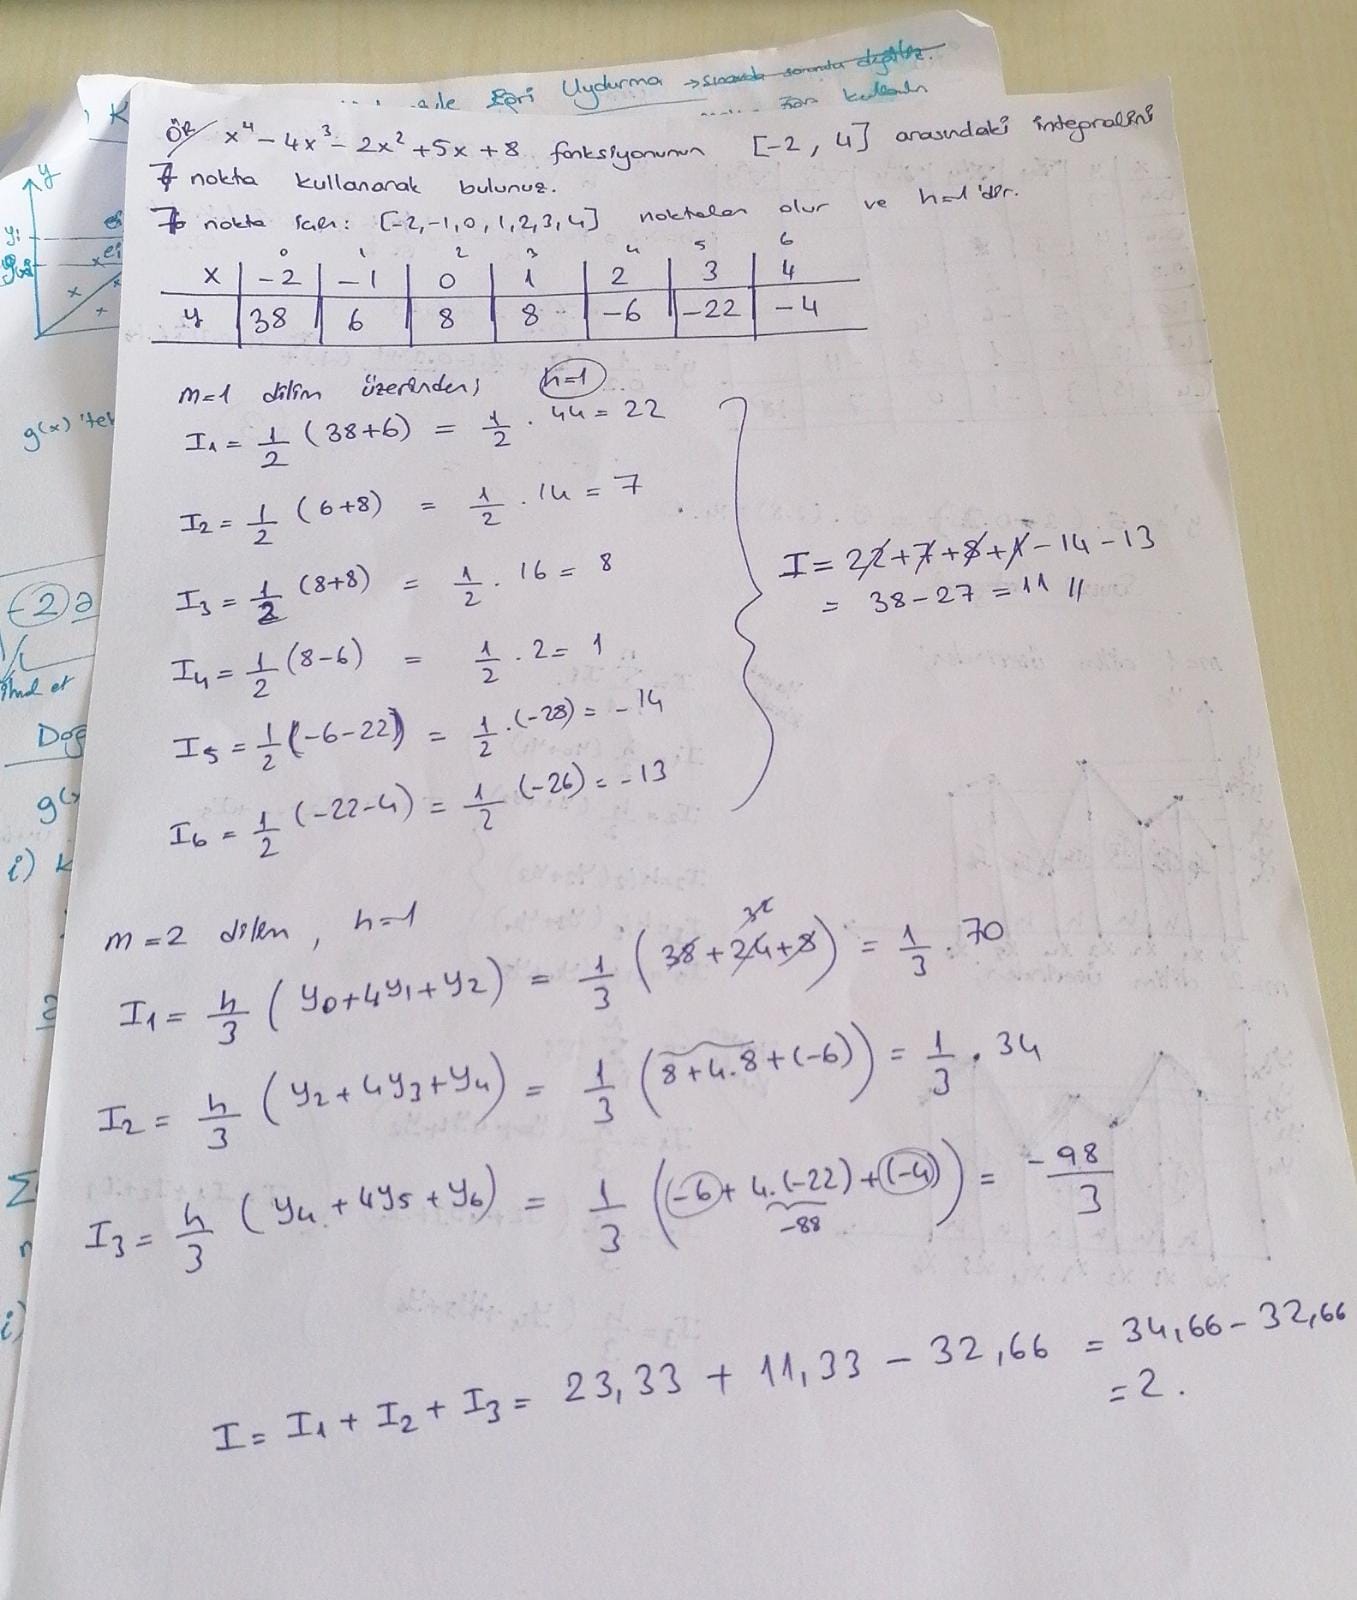 ile Eğri Uydurma → sınavda sorumlu değiliz.
ÖR/ x⁴ - 4x³ - 2x² + 5x + 8 fonksiyonunun [-2, 4] arasındaki integralini
7 nokta kullanarak bulunuz.
7 nokta için: [-2,-1,0,1,2,3,4] noktaları olur ve h=1'dir.
0 1 2 3 4 5 6
x | -2 | -1 | 0 | 1 | 2 | 3 | 4
y | 38 | 6 | 8 | 8 | -6 | -22 | -4
m=1 dilim üzerinden; h=1
I₁ = 1/2 (38+6) = 1/2 . 44 = 22
I₂ = 1/2 (6+8) = 1/2 . 14 = 7
I₃ = 1/2 (8+8) = 1/2 . 16 = 8
I₄ = 1/2 (8-6) = 1/2 . 2 = 1
I₅ = 1/2 (-6-22) = 1/2 . (-28) = -14
I₆ = 1/2 (-22-4) = 1/2 (-26) = -13
I = 22+7+8+1-14-13
= 38-27 = 11 //
m=2 dilim, h=1
I₁ = h/3 (y₀+4y₁+y₂) = 1/3 (38+24+8) = 1/3 . 70
I₂ = h/3 (y₂+4y₃+y₄) = 1/3 (8+4.8+(-6)) = 1/3 . 34
I₃ = h/3 (y₄+4y₅+y₆) = 1/3 (-6+4.(-22)+(-4)) = -98/3
-88
I = I₁ + I₂ + I₃ = 23,33 + 11,33 - 32,66 = 34,66 - 32,66
= 2.
y
g(x)
-2
i)
Σ
i)